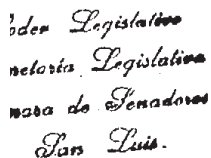 oder Legislativo
retaría Legislativa
mara de Senadores
San Luis.